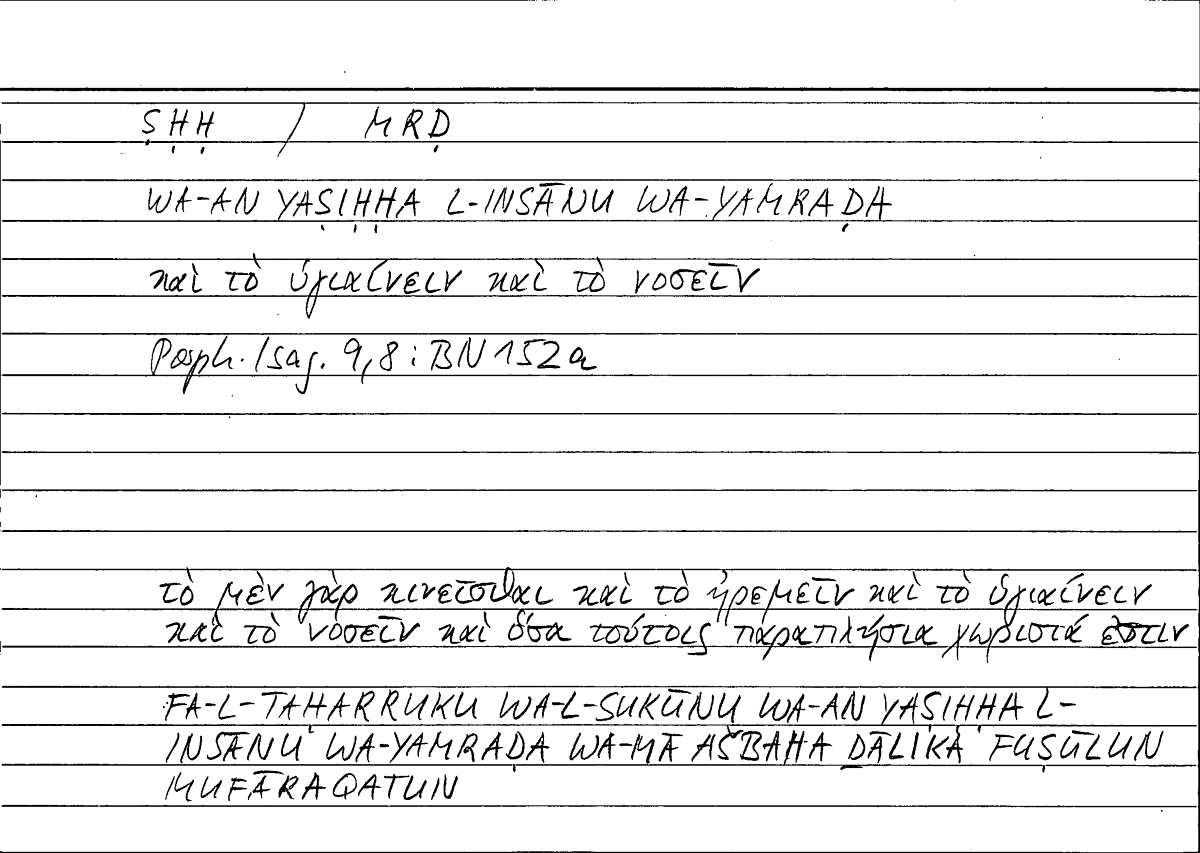 ṢḤḤ / MRḌ
WA-AN YAṢIḤḤA L-INSĀNU WA-YAMRAḌA
καὶ τὸ ὑγιαίνειν καὶ τὸ νοσεῖν
Porph. Isag. 9,8 : BN 152a
τὸ μὲν γὰρ κινεῖσθαι καὶ τὸ ἠρεμεῖν καὶ τὸ ὑγιαίνειν
καὶ τὸ νοσεῖν καὶ ὅσα τούτοις παραπλήσια χωριστά ἐστιν
FA-L-TAḤARRUKU WA-L-SUKŪNU WA-AN YAṢIḤḤA L-
INSĀNU WA-YAMRAḌA WA-MĀ AŠBAHA ḎĀLIKA FUṢŪLUN
MUFĀRAQATUN